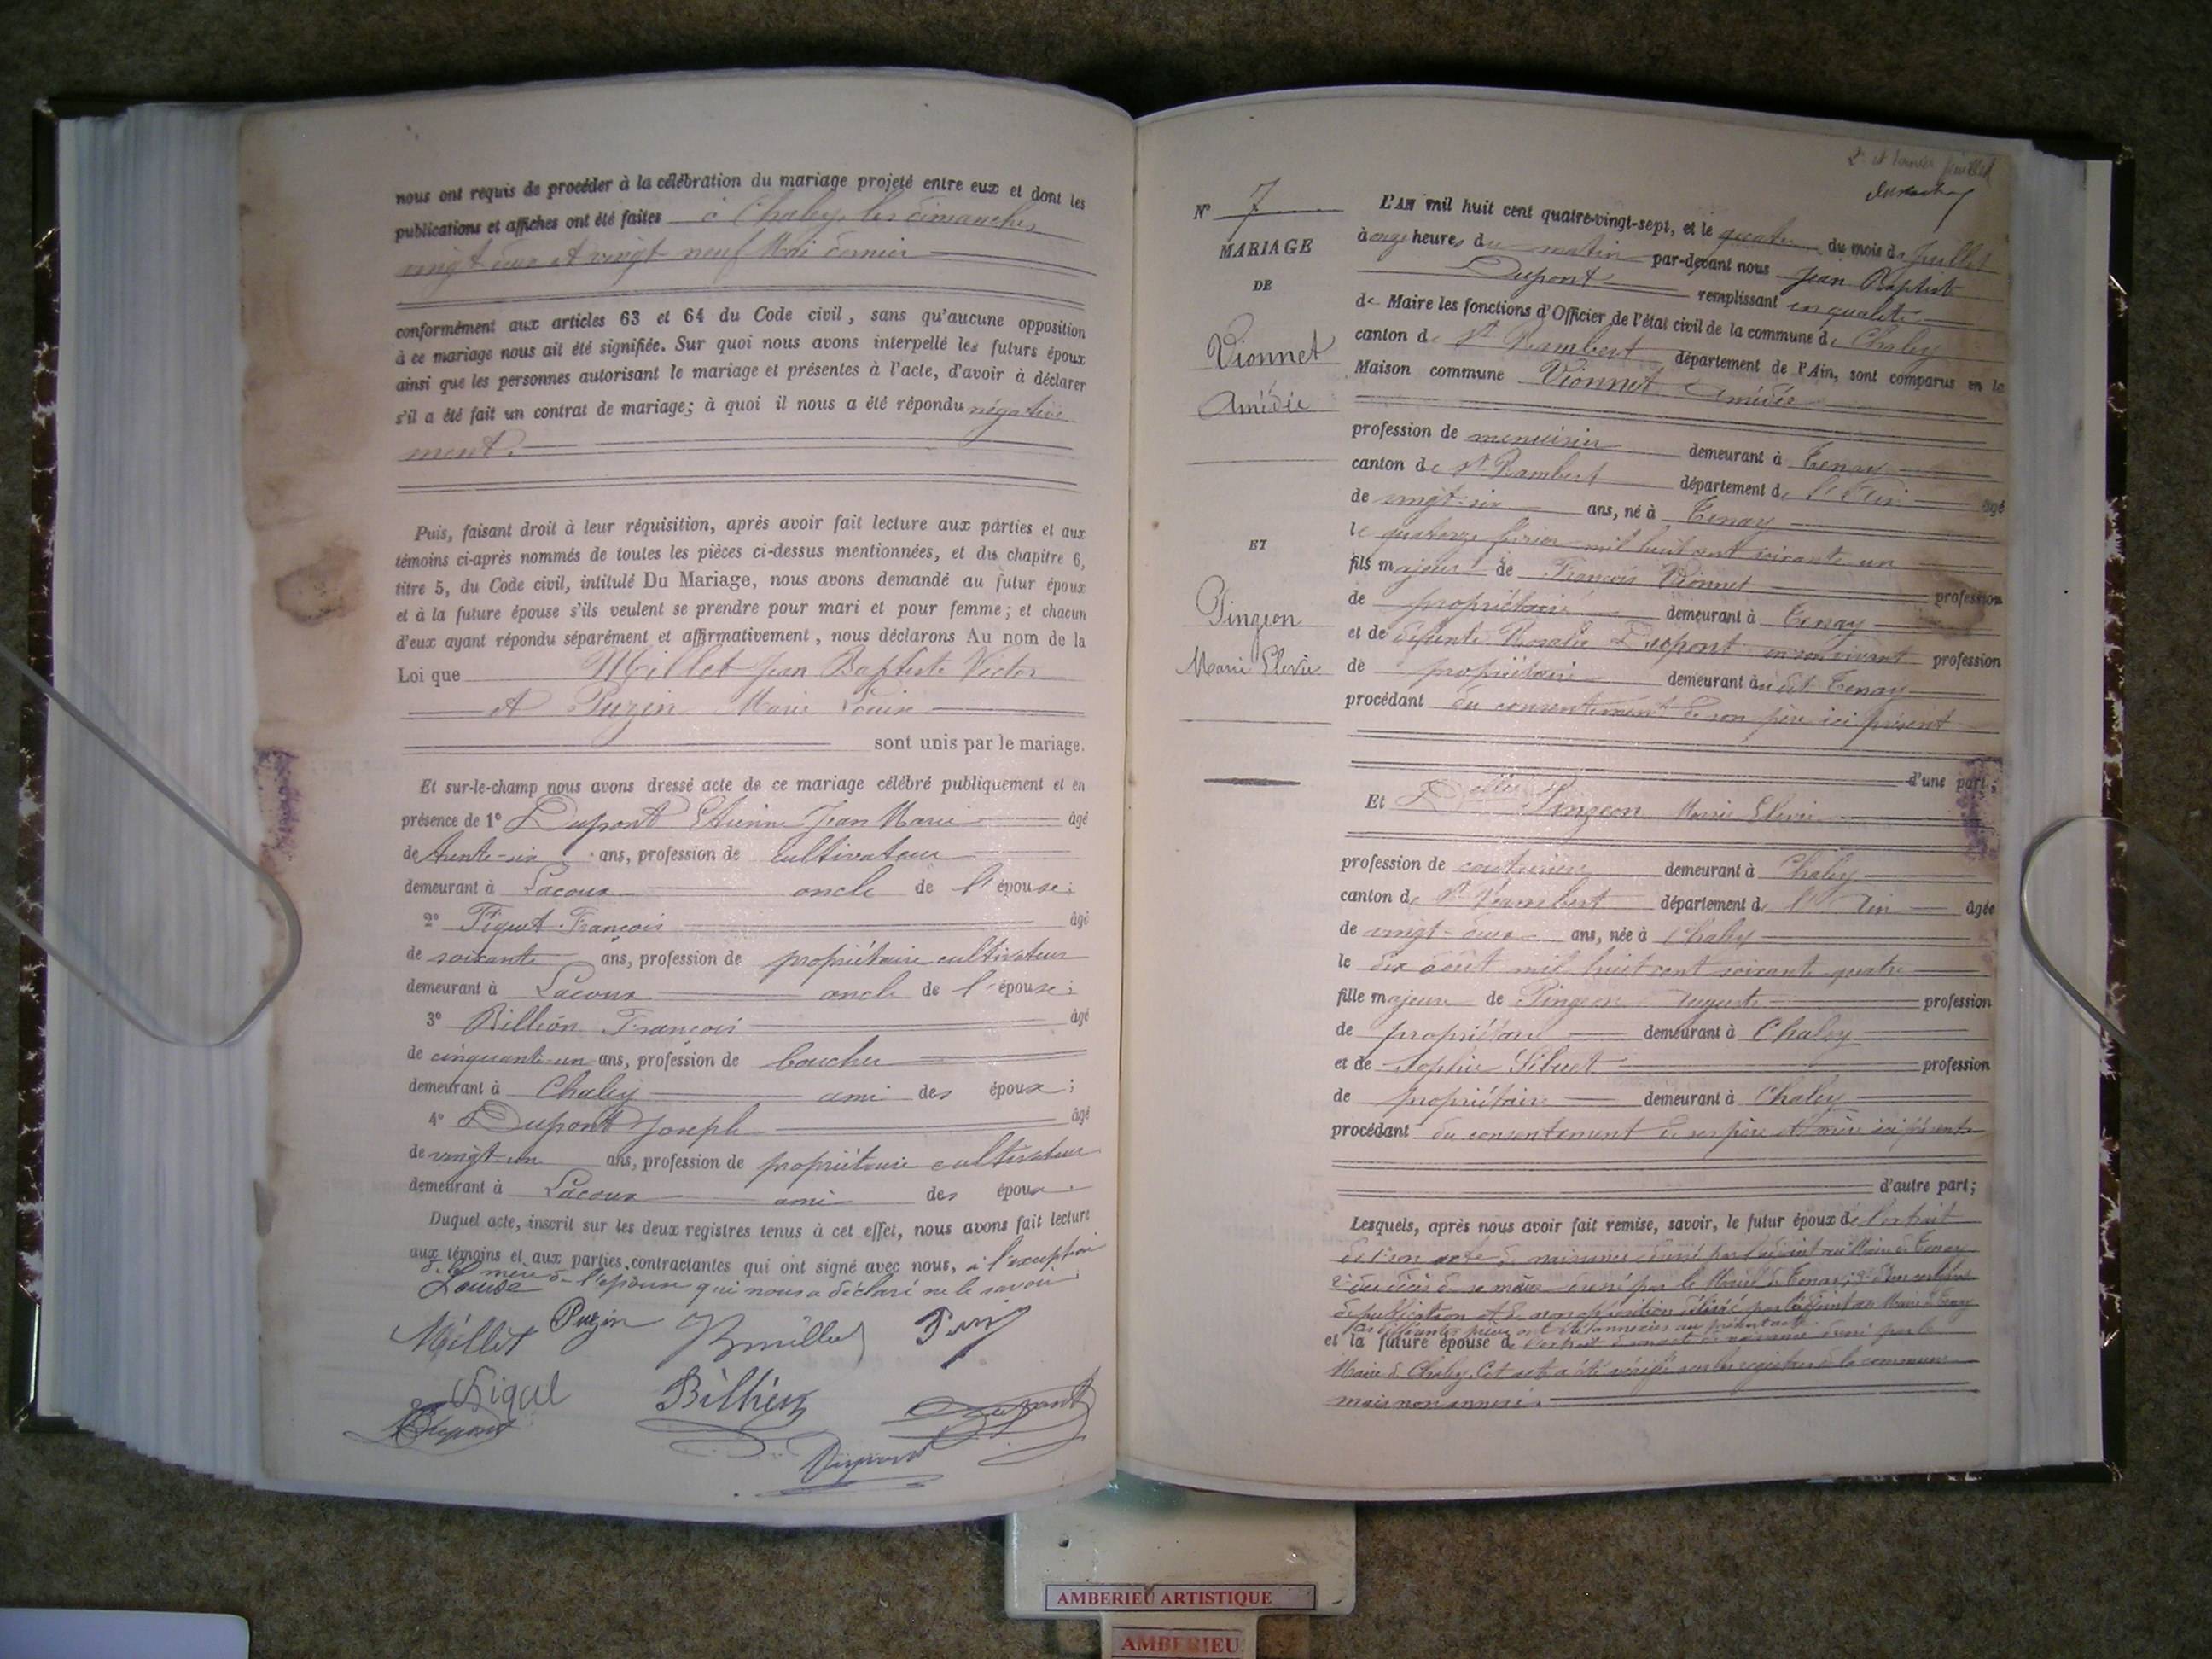 nous ont requis de procéder à la célébration du mariage projeté entre eux et dont les
publications et affiches ont été faites à Chaley, les dimanches
vingt deux et vingt neuf Mai dernier
conformément aux articles 63 et 64 du Code civil, sans qu'aucune opposition
à ce mariage nous ait été signifiée. Sur quoi nous avons interpellé les futurs époux
ainsi que les personnes autorisant le mariage et présentes à l'acte, d'avoir à déclarer
s'il a été fait un contrat de mariage; à quoi il nous a été répondu négative
ment.
Puis, faisant droit à leur réquisition, après avoir fait lecture aux parties et aux
témoins ci-après nommés de toutes les pièces ci-dessus mentionnées, et du chapitre 6,
titre 5, du Code civil, intitulé Du Mariage, nous avons demandé au futur époux
et à la future épouse s'ils veulent se prendre pour mari et pour femme; et chacun
d'eux ayant répondu séparément et affirmativement, nous déclarons Au nom de la
Loi que Millet Jean Baptiste Victor
et Puzin Marie Louise
sont unis par le mariage.
Et sur-le-champ nous avons dressé acte de ce mariage célébré publiquement et en
présence de 1° Dupont Etienne Jean Marie âgé
de trente-six ans, profession de cultivateur
demeurant à Lacoux oncle de l'épouse;
2° Figuet François âgé
de soixante ans, profession de propriétaire cultivateur
demeurant à Lacoux oncle de l'épouse;
3° Billion François âgé
de cinquante-un ans, profession de boucher
demeurant à Chaley ami des époux;
4° Dupont Joseph âgé
de vingt-un ans, profession de propriétaire cultivateur
demeurant à Lacoux ami des époux.
Duquel acte, inscrit sur les deux registres tenus à cet effet, nous avons fait lecture
aux témoins et aux parties contractantes qui ont signé avec nous, à l'exception
de la mère de l'épouse qui nous a déclaré ne le savoir
Louise
Millet Puzin
Billion
Dupont
Dupont
2e et dernier feuillet
N° 7
MARIAGE
DE
Vionnet
Amédée
ET
Pingeon
Marie Elevie
L'AN mil huit cent quatre-vingt-sept, et le quatre du mois de Juillet
à onze heures du matin par-devant nous Jean Baptiste
Dupont remplissant en qualité
de Maire les fonctions d'Officier de l'état civil de la commune de Chaley
canton de St Rambert département de l'Ain, sont comparus en la
Maison commune Vionnet Amédée
profession de menuisier demeurant à Tenay
canton de St Rambert département de l'Ain âgé
de vingt-six ans, né à Tenay
le quatorze février mil huit cent soixante un
fils majeur de François Vionnet profession
de propriétaire demeurant à Tenay
et de défunte Rosalie Dupont en son vivant profession
de propriétaire demeurant au dit Tenay
procédant du consentement de son père ici présent
d'une part;
Et Delle Pingeon Marie Elevie
profession de couturière demeurant à Chaley
canton de St Rambert département de l'Ain âgée
de vingt-deux ans, née à Chaley
le dix août mil huit cent soixante quatre
fille majeure de Pingeon Auguste profession
de propriétaire demeurant à Chaley
et de Sophie Sibuet profession
de propriétaire demeurant à Chaley
procédant du consentement de ses père et mère ici présents
d'autre part;
Lesquels, après nous avoir fait remise, savoir, le futur époux de l'extrait
de son acte de naissance délivré par l'adjoint au Maire de Tenay
2° du décès de sa mère délivré par le Maire de Tenay; 3° d'un certificat
de publication et de non opposition délivré par l'adjoint au Maire de Tenay
Les différentes pièces ont été annexées au présent acte
et la future épouse de l'extrait de son acte de naissance délivré par le
Maire de Chaley. Cet acte a été vérifié sur les registres de la commune
mais non annexé.
AMBERIEU ARTISTIQUE
AMBERIEU